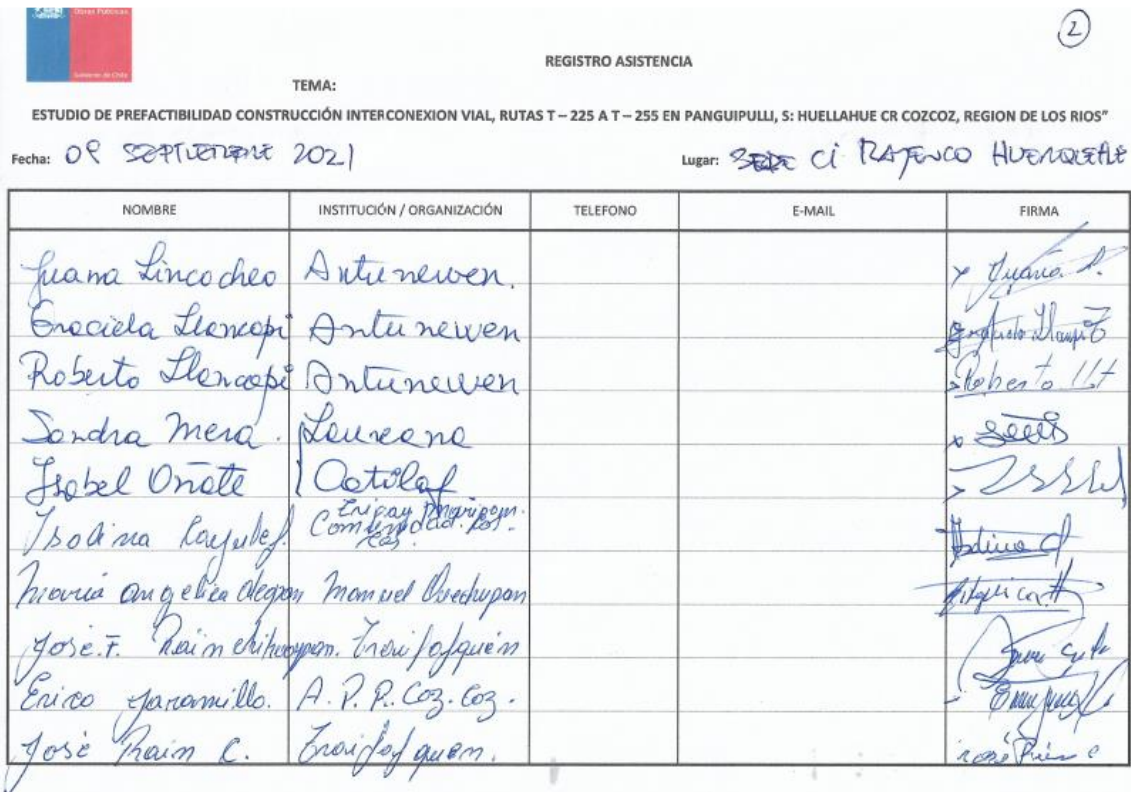 Obras Públicas
Gobierno de Chile
2
REGISTRO ASISTENCIA
TEMA:
ESTUDIO DE PREFACTIBILIDAD CONSTRUCCIÓN INTERCONEXION VIAL, RUTAS T – 225 A T – 255 EN PANGUIPULLI, S: HUELLAHUE CR COZCOZ, REGION DE LOS RIOS"
Fecha: 09 SEPTIEMBRE 2021 Lugar: SEDE CI
NOMBRE INSTITUCIÓN / ORGANIZACIÓN TELEFONO E-MAIL FIRMA
Juana Lincocheo Antunewen. Juana L.
Graciela Llancapi Antunewen
Roberto Llancapi Antunewen Roberto
Sandra Mera. Laureano
Isabel Oñate Catilaf
Isolina Comunidad
María angelica Manuel
José. F. Trailafquén
Erico Jaramillo. A. P. R. Coz. Coz.
José Rain C. Trailafquen.